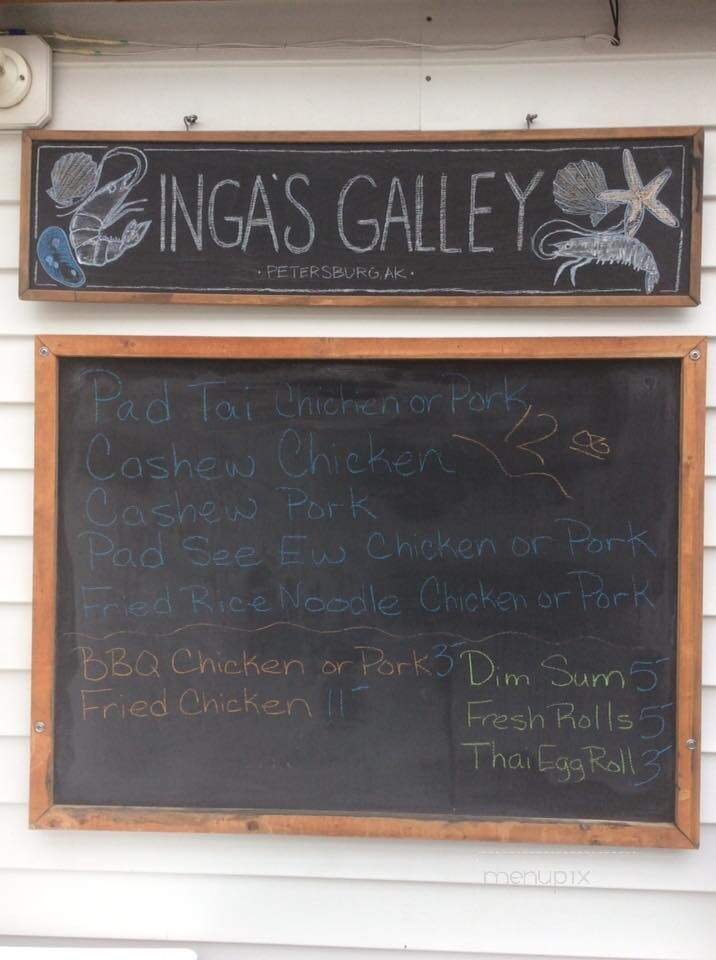 INGA'S GALLEY
• PETERSBURG, AK •
Pad Tai Chicken or Pork
12 00
Cashew Chicken
Cashew Pork
Pad See Ew Chicken or Pork
Fried Rice Noodle Chicken or Pork
BBQ Chicken or Pork 3-
Fried Chicken 11-
Dim Sum 5-
Fresh Rolls 5-
Thai Egg Roll 3-
menupix